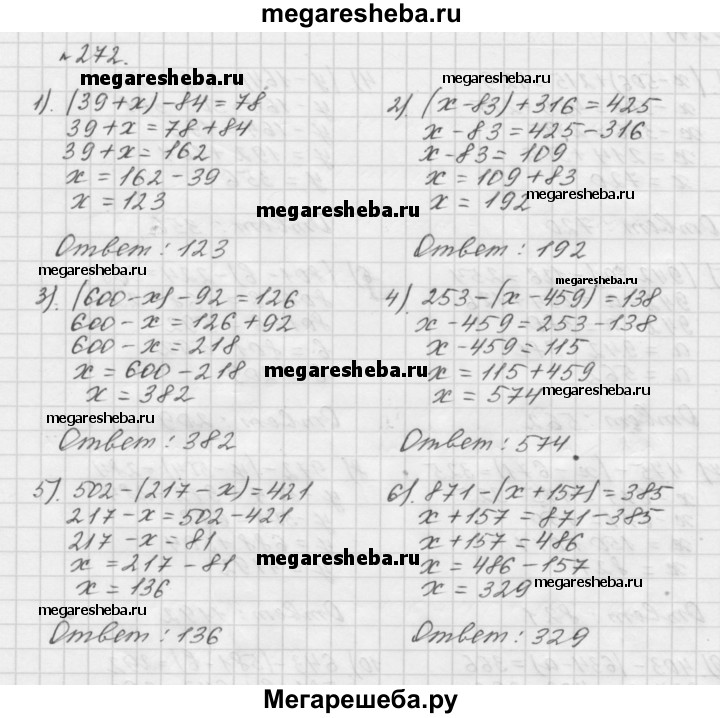 megaresheba.ru
№272.
megaresheba.ru
megaresheba.ru
1). (39+x)-84=78
39+x=78+84
39+x=162
x=162-39
x=123
Ответ: 123
2). (x-83)+316=425
x-83=425-316
x-83=109
x=109+83
x=192
megaresheba.ru
megaresheba.ru
Ответ: 192
megaresheba.ru
megaresheba.ru
3). (600-x)-92=126
600-x=126+92
600-x=218
x=600-218
x=382
megaresheba.ru
Ответ: 382
4). 253-(x-459)=138
x-459=253-138
x-459=115
x=115+459
x=574
megaresheba.ru
megaresheba.ru
Ответ: 574.
5). 502-(217-x)=421
217-x=502-421
217-x=81
x=217-81
x=136
megaresheba.ru
Ответ: 136
6). 871-(x+157)=385
x+157=871-385
x+157=486
x=486-157
x=329
megaresheba.ru
megaresheba.ru
Ответ: 329
Мегарешеба.ру